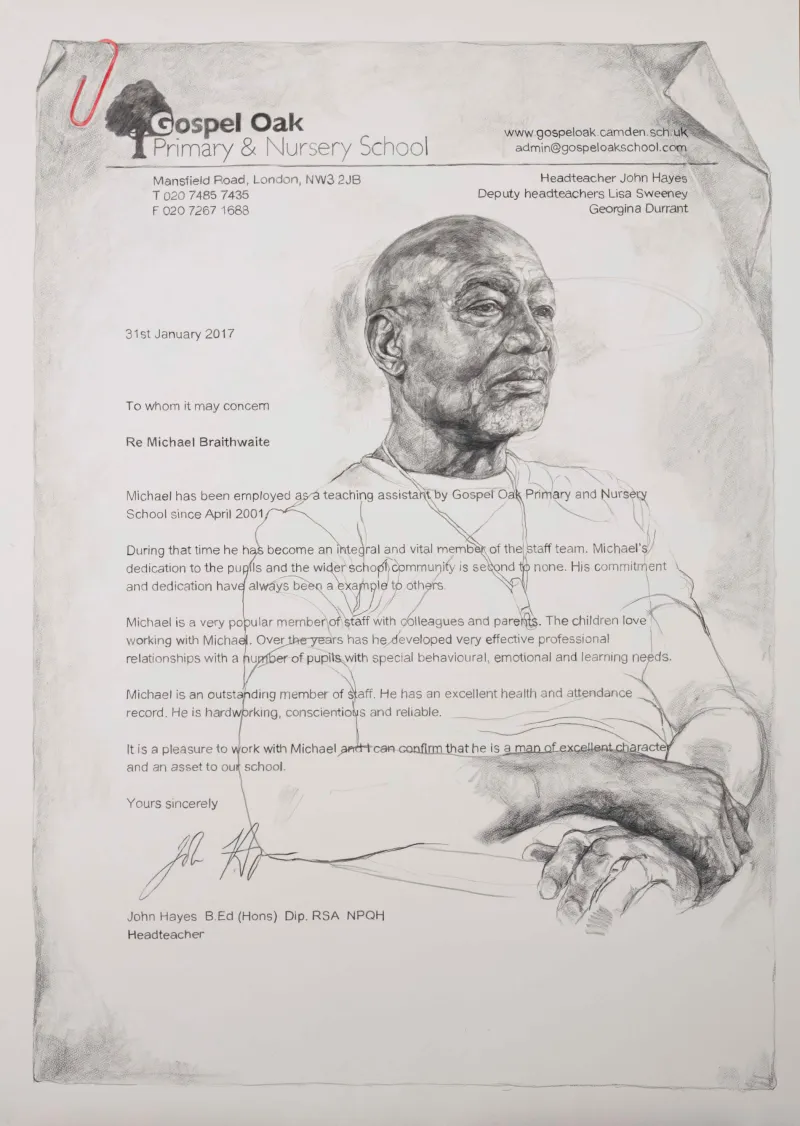 Gospel Oak
Primary & Nursery School
www.gospeloak.camden.sch.uk
admin@gospeloakschool.com
Mansfield Road, London, NW3 2JB
T 020 7485 7435
F 020 7267 1688
Headteacher John Hayes
Deputy headteachers Lisa Sweeney
Georgina Durrant
31st January 2017
To whom it may concern
Re Michael Braithwaite
Michael has been employed as a teaching assistant by Gospel Oak Primary and Nursery
School since April 2001
During that time he has become an integral and vital member of the staff team. Michael's
dedication to the pupils and the wider school community is second to none. His commitment
and dedication have always been a example to others.
Michael is a very popular member of staff with colleagues and parents. The children love
working with Michael. Over the years has he developed very effective professional
relationships with a number of pupils with special behavioural, emotional and learning needs.
Michael is an outstanding member of staff. He has an excellent health and attendance
record. He is hardworking, conscientious and reliable.
It is a pleasure to work with Michael and I can confirm that he is a man of excellent character
and an asset to our school.
Yours sincerely
John Hayes B.Ed (Hons) Dip. RSA NPQH
Headteacher